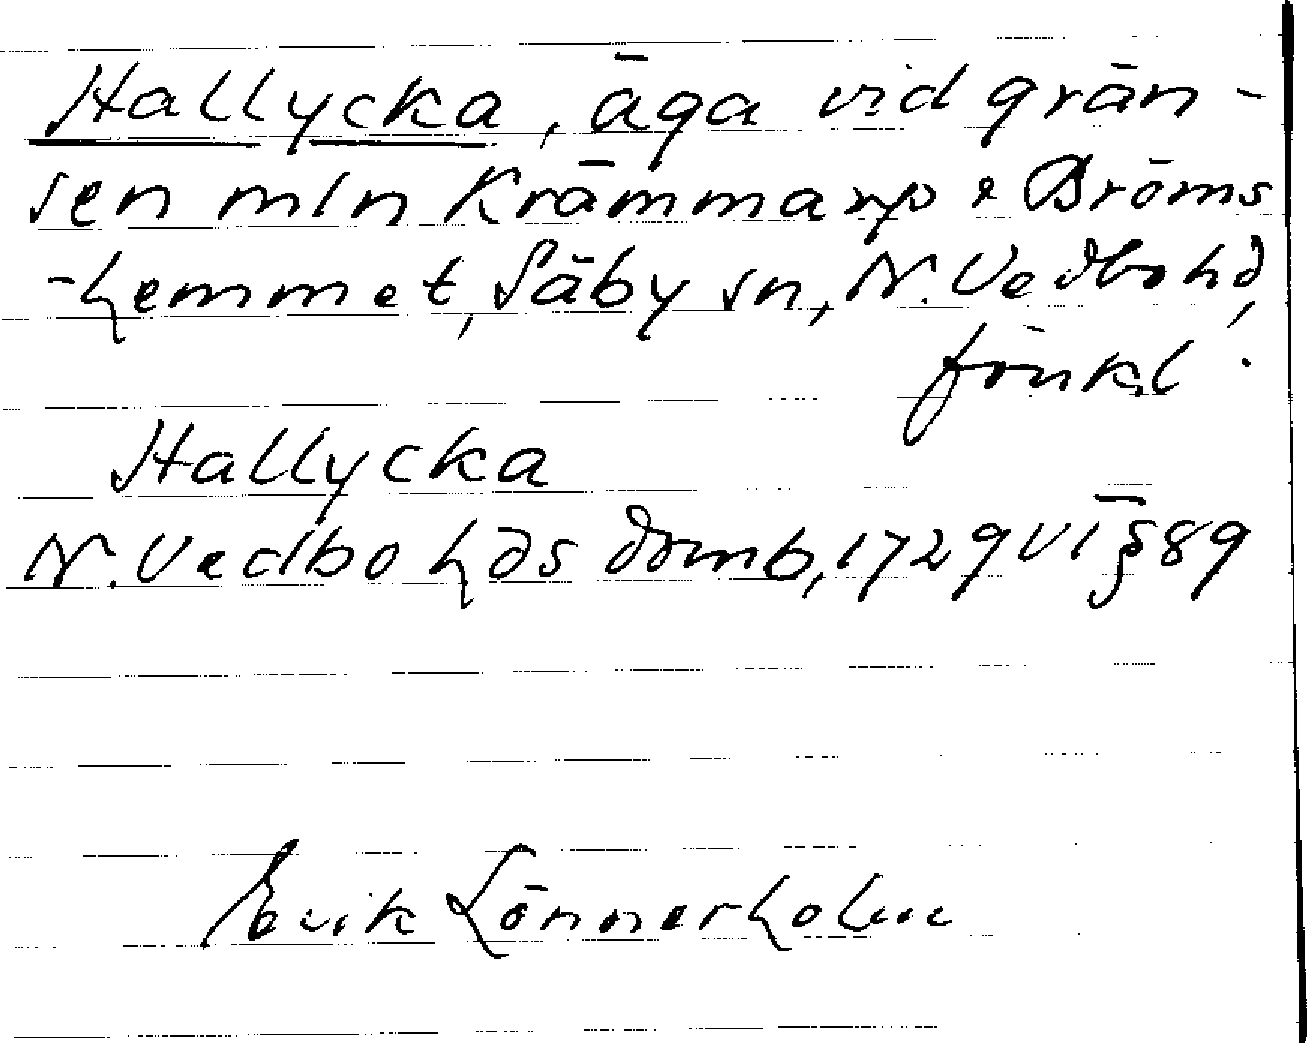 Hallycka, äga vid grän-
sen mln Krämmarp & Bröms
-hemmet, Säby sn, N. Vedbo hd,
Jönk.l.
Hallycka
N. Vedbo hds domb, 1729 VI § 89
Erik Lönnerholm